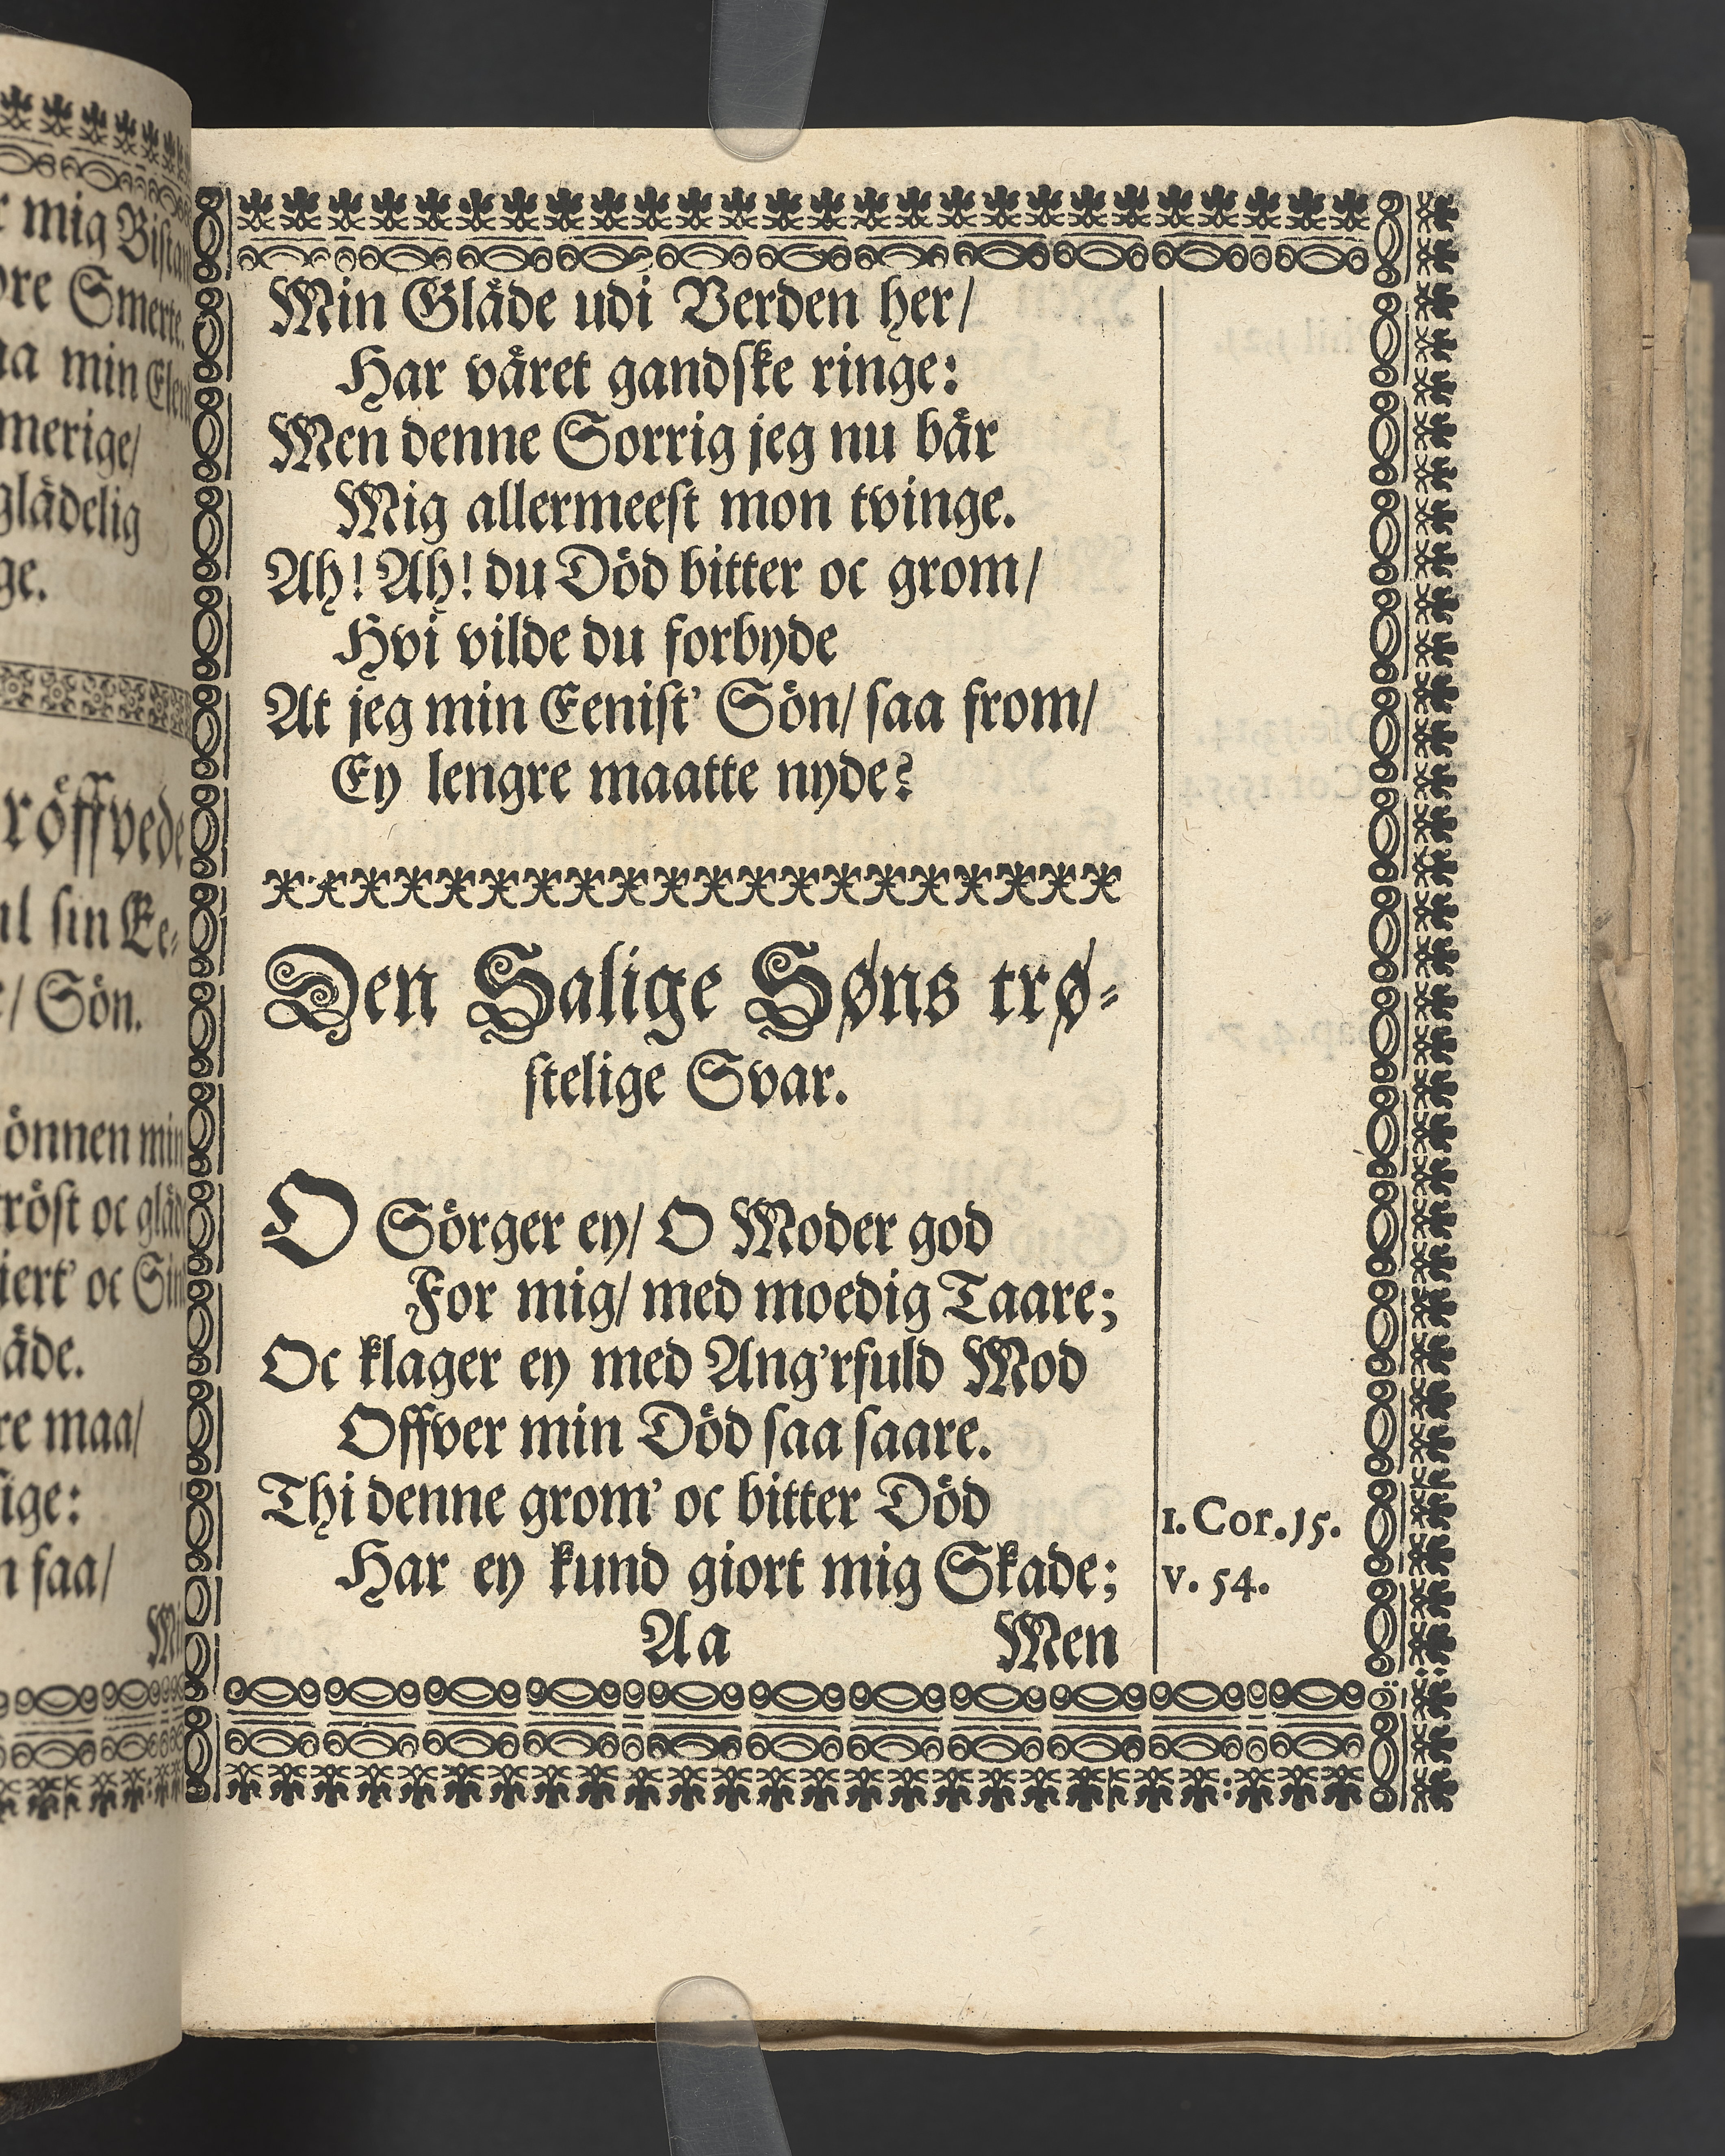 Min Gläde udi Verden her/
Harväret gandske ringe:
Men denne Sorrig jeg nu bär
Mig allermeest mon tvinge.
Ah! Ah! du Död bitter oc grom/
Hvi vilde du forbyde
At jeg min Eenist' Sön/ saa from/
Ey lengre maatte nyde?
Den Salige Søns trø-
stelige Svar.
O Sörger ey/ O Moder god
For mig/ med moedig Taare;
Oc klager ey med Ang'rfuld Mod
Offver min Död saa saare.
Thi denne grom' oc bitter Död
Har ey kund giort mig Skade;
1. Cor. 15.
v. 54.
Aa Men
mig
Smerte.
min
merige/
glädelig
ge.
röffvede
sin Ee-
/ Sön.
önnen min
tröst oc
oc
re maa/
ige:
saa/